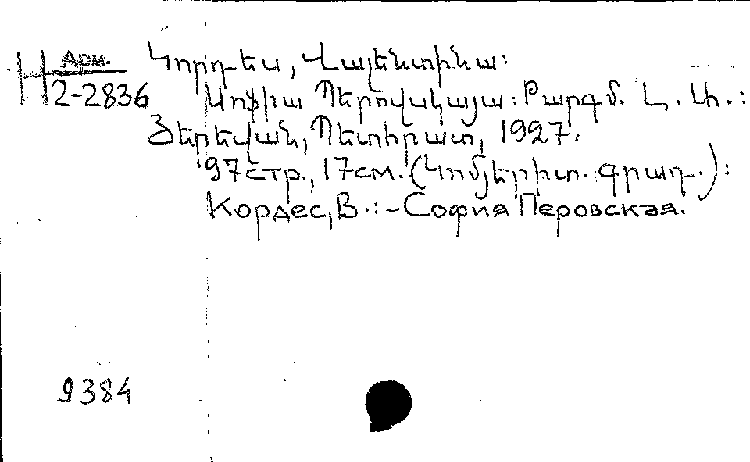 Арм.
Н 2-2836
Կորդես, Վալենտինա:
Սոֆիա Պերովսկայա: Բարգմ. Հ. Ս.:
Յերեվան, Պետհրատ, 1927.
97 стр., 17 см. (Կոմյերիտ. գրադ.):
Кордес, В.:-София Перовская.
9384